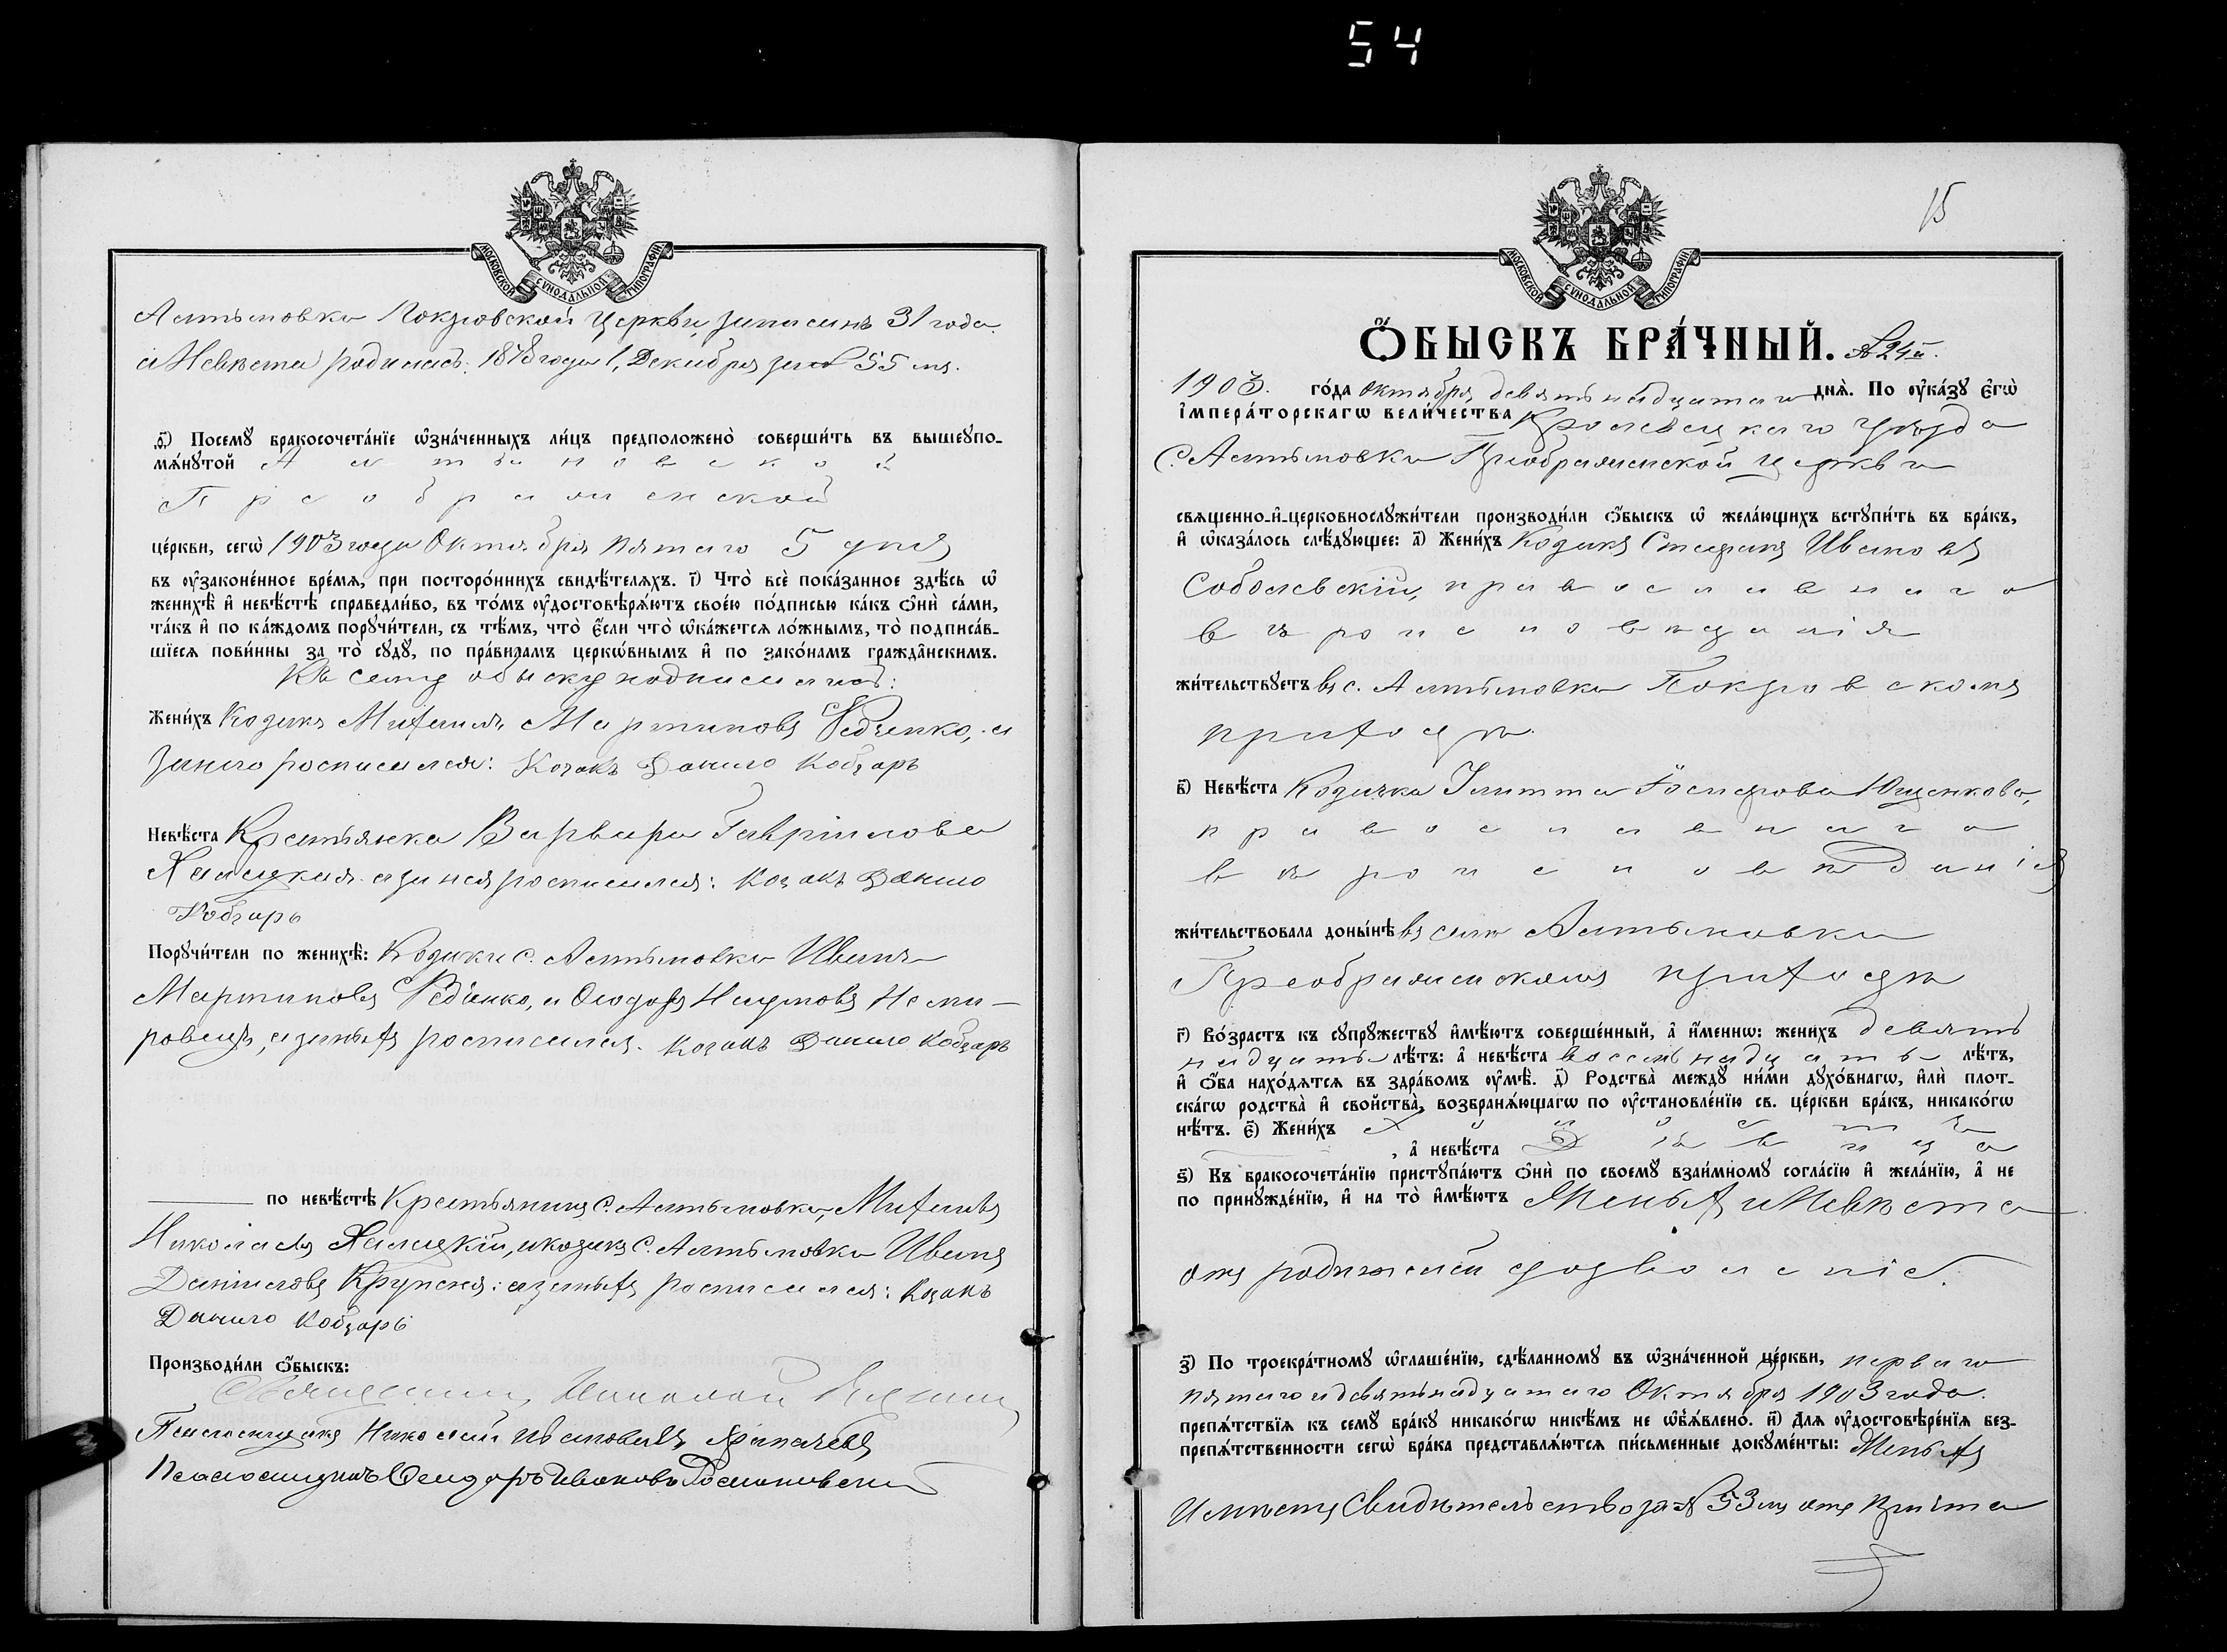 54
МОСКОВСКОЙ СѴНОДАЛЬНОЙ ТИПОГРАФІИ
Алтыновки Покровской церкви записанъ 31 года
а Невѣста родилась: 1878 года 1, Декабря за № 55 мъ.
д҃) Посемꙋ̀ бракосочета́нїе ѡ҆зна́ченныхъ ли́цъ предположено̀ соверши́ть въ вышеꙋпо-
мѧ́нꙋтой Алтыновской
Преображенской
це́ркви, сегѡ̀ 1903 года Октября пятаго 5 дня
въ ᲂу҆зако́ненное вре́мѧ, при посторо́ннихъ свидѣ́телѧхъ. і҃) Что̀ всѐ пока́занное здѣ́сь ѡ҆
женихѣ̀ и҆ невѣ́стѣ справедли́во, въ то́мъ ᲂу҆достовѣрѧ́ютъ свое́ю по́дписью ка́къ ѻ҆нѝ са́ми,
та́къ и҆ по ка́ждомъ порꙋчи́тели, съ тѣ́мъ, что̀ є҆́сли что̀ ѡ҆ка́жетсѧ ло́жнымъ, то̀ подписа́в-
шїесѧ пови́нны за то̀ сꙋдꙋ̀, по пра́виламъ церкѡ́внымъ и҆ по зако́намъ гражда̂нскимъ.
Къ сему обыску подписались:
Жени́хъ Козакъ Михаилъ Мартиновъ Редченко, а
за него росписался: Козакъ Данило Кобзарь
Невѣ́ста Крестьянка Варвара Гавріилова
Халецкая. а за нея росписался: Козакъ Данило
Кобзарь
Порꙋчи́тели по женихѣ̀: Козаки с. Алтыновки Иванъ
Мартиновъ Редченко, и Ѳеодоръ Наумовъ Неми-
ровецъ, а за нихъ росписался. Козакъ Данило Кобзарь
по невѣ́стѣ Крестьянинъ с. Алтыновки, Михаилъ
Николаевъ Халецкій, и козакъ с. Алтыновки Иванъ
Даниловъ Крупска: а за нихъ росписался: Козакъ
Данило Кобзарь
Производи́ли ѻ҆́быскъ:
Священникъ Николай
Псаломщикъ Николай Ивановичъ
Псаломщикъ Иванов Романовский
15
МОСКОВСКОЙ СѴНОДАЛЬНОЙ ТИПОГРАФІИ
Ѻ҆́БЫСКЪ БРА́ЧНЫЙ. № 24й.
1903. го́да Октября девятнадцатаго днѧ̀. По ᲂу҆ка́зꙋ є҆гѡ̀
і҆мпера́торскагѡ вели́чества Кролевецкаго уѣзда
С. Алтыновки Преображенской церкви
свѧщенно-и҆-церковнослꙋжи́тели производи́ли ѻ҆́быскъ ѡ҆ жела́ющихъ встꙋпи́ть въ бра́къ,
и҆ ѡ҆каза́лось слѣ́дꙋющее: а҃) Жени́хъ Козакъ Стефанъ Ивановъ
Соболевскій, православнаго
вѣроисповѣданія
жи́тельствꙋетъ въ с. Алтыновки Покровскомъ
приходѣ
в҃) Невѣ́ста Козачка Ющенкова,
православнаго
вѣроисповѣданія
жи́тельствовала донынѣ въ селѣ Алтыновки
Преображенскомъ приходѣ
г҃) Во́зрастъ къ сꙋпрꙋ́жествꙋ и҆мѣ́ютъ соверше́нный, а҆ и҆́меннѡ: жени́хъ девят
надцать лѣ́тъ: а҆ невѣ́ста восемнадцать лѣ́тъ,
и҆ ѻ҆́ба нахо́дѧтсѧ въ здра́вомъ ᲂу҆мѣ̀. д҃) Родства̀ междꙋ̀ ни́ми дꙋхо́внагѡ, и҆лѝ плот-
ска́гѡ родства̀ и҆ свойства̀, возбранѧ́ющагѡ по ᲂу҆становле́нїю св. це́ркви бра́къ, никако́гѡ
нѣ́тъ. є҃) Жени́хъ Холостъ
, а҆ невѣ́ста Дѣвица
ѕ҃) Къ бракосочета́нїю пристꙋпа́ютъ ѻ҆нѝ по своемꙋ̀ взаи́мномꙋ согла́сїю и҆ жела́нїю, а҆ не
по принꙋжде́нїю, и҆ на то̀ и҆мѣ́ютъ Женихъ и Невѣста
отъ родителей дозволеніе.
з҃) По троекра́тномꙋ ѡ҆глаше́нїю, сдѣ́ланномꙋ въ ѡ҆зна́ченной це́ркви, перваго
пятаго и девятнадцатаго Октября 1903 года.
препѧ́тствїѧ къ семꙋ̀ бра́кꙋ никако́гѡ никѣ́мъ не ѡ҆б̾ѧ́влено. и҃) Длѧ ᲂу҆достовѣре́нїѧ без-
препѧ́тственности сегѡ̀ бра́ка представлѧ́ютсѧ пи́сьменные докꙋме́нты: Женихъ
Имѣетъ Свидѣтельство за № 53 мъ отъ Причта